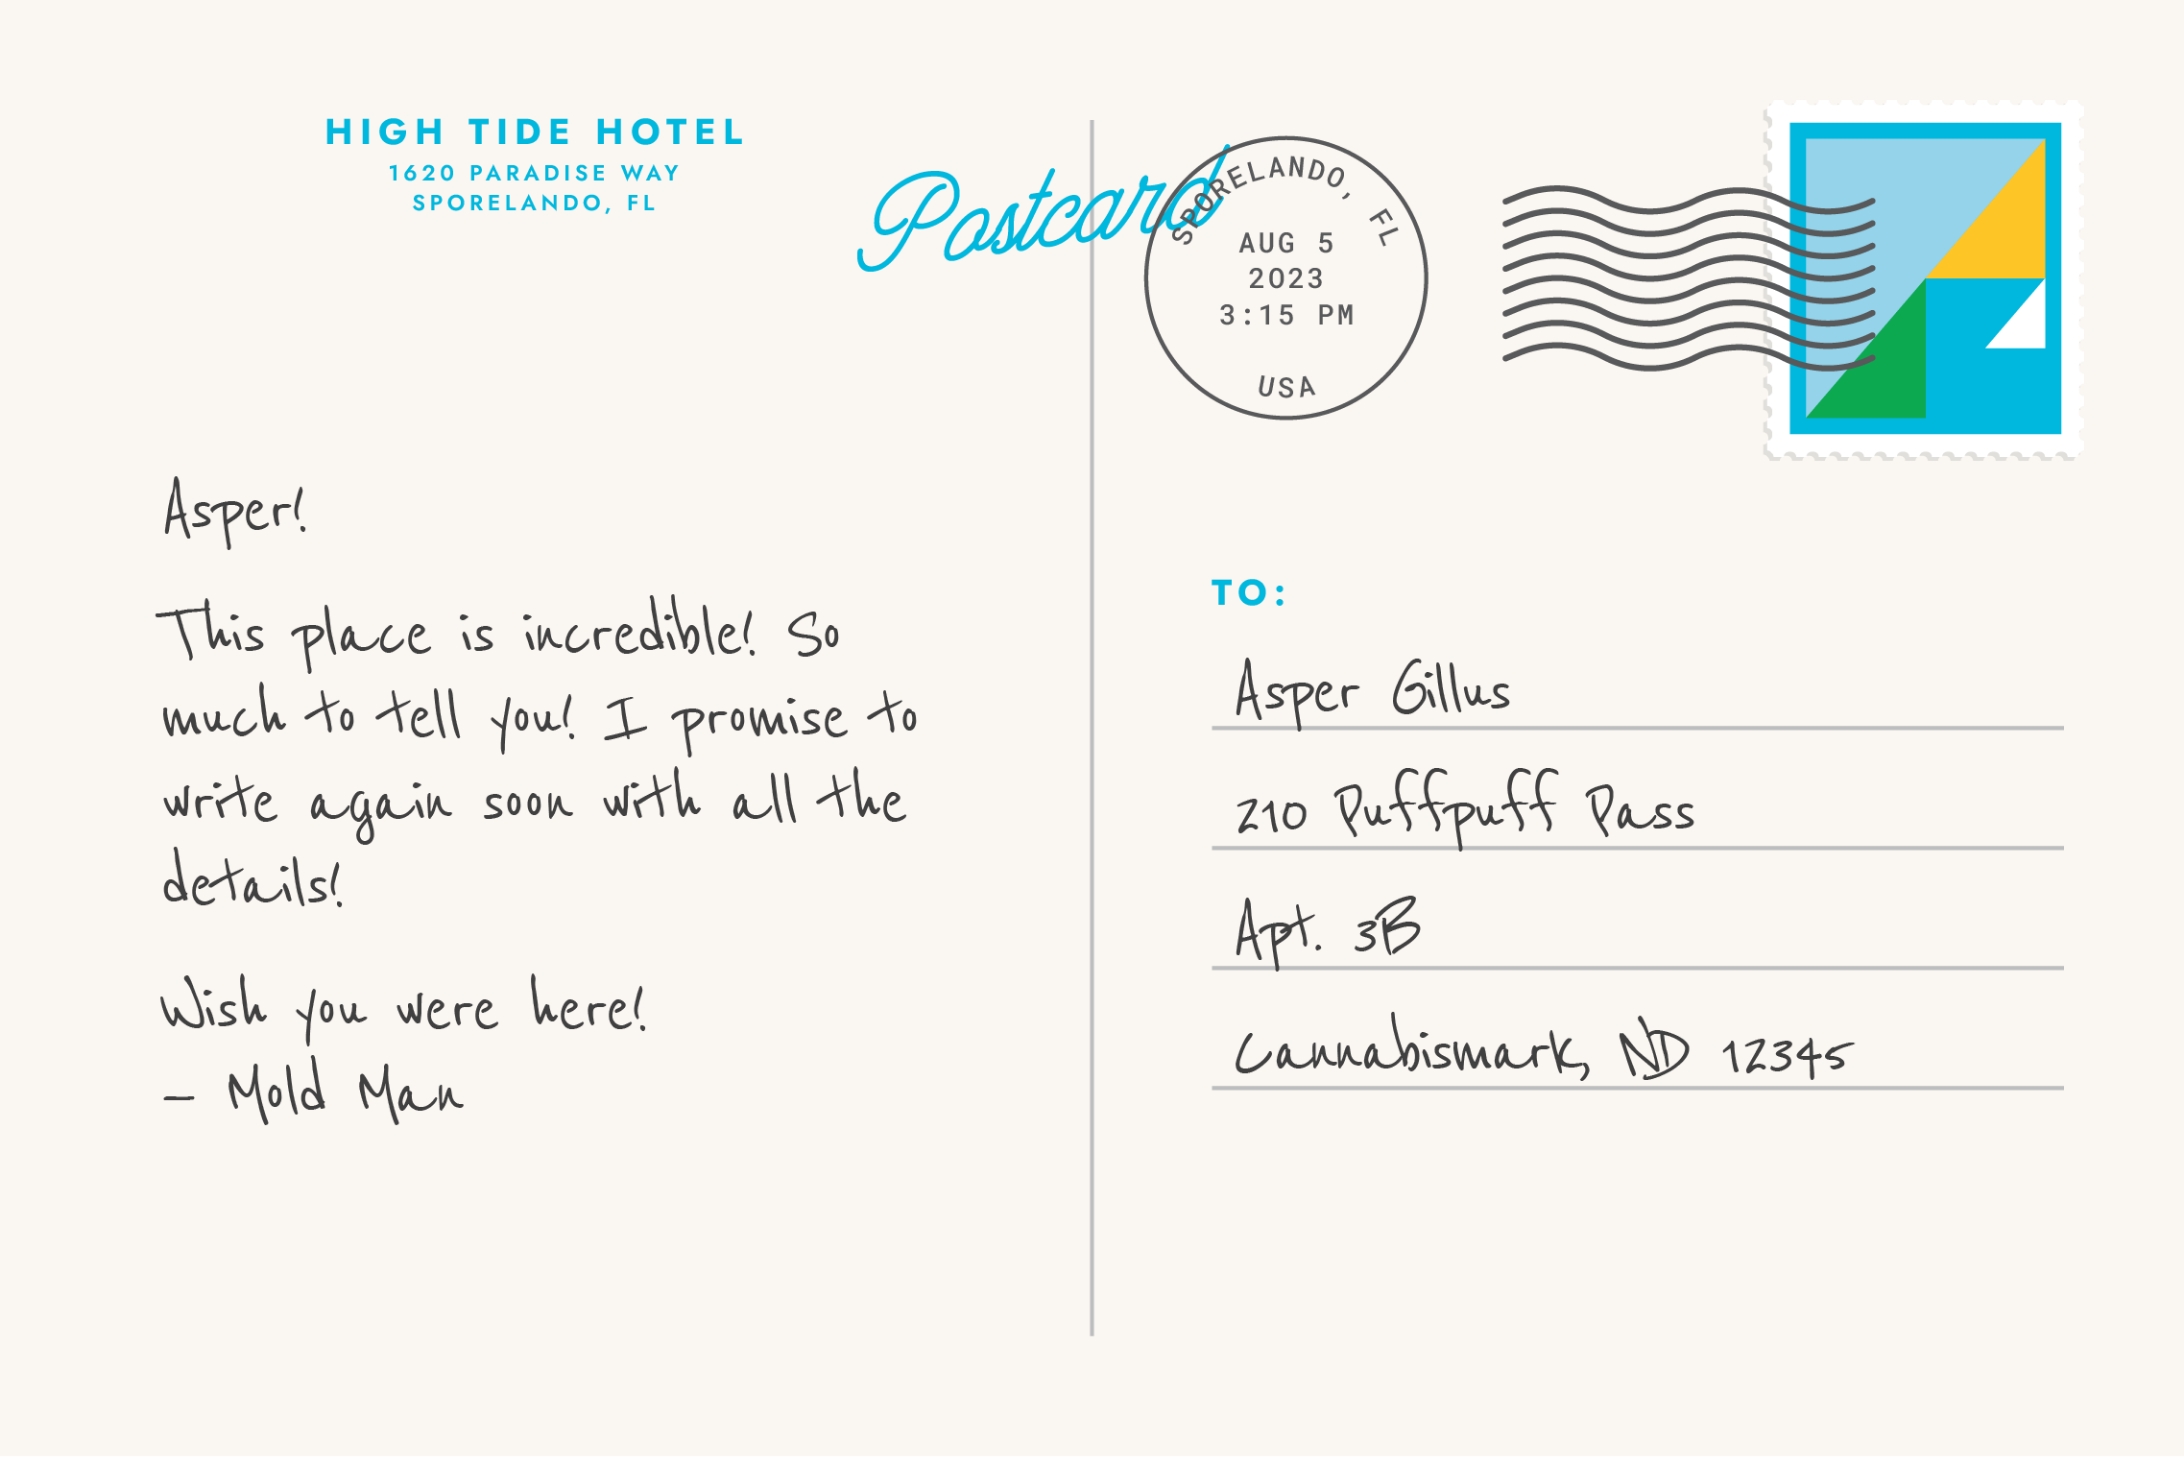 HIGH TIDE HOTEL
1620 PARADISE WAY
SPORELANDO, FL
Postcard
SPORELANDO, FL
AUG 5
2023
3:15 PM
USA
Asper!
This place is incredible! So
much to tell you! I promise to
write again soon with all the
details!
Wish you were here!
– Mold Man
TO:
Asper Gillus
210 Puffpuff Pass
Apt. 3B
Cannabismark, ND 12345